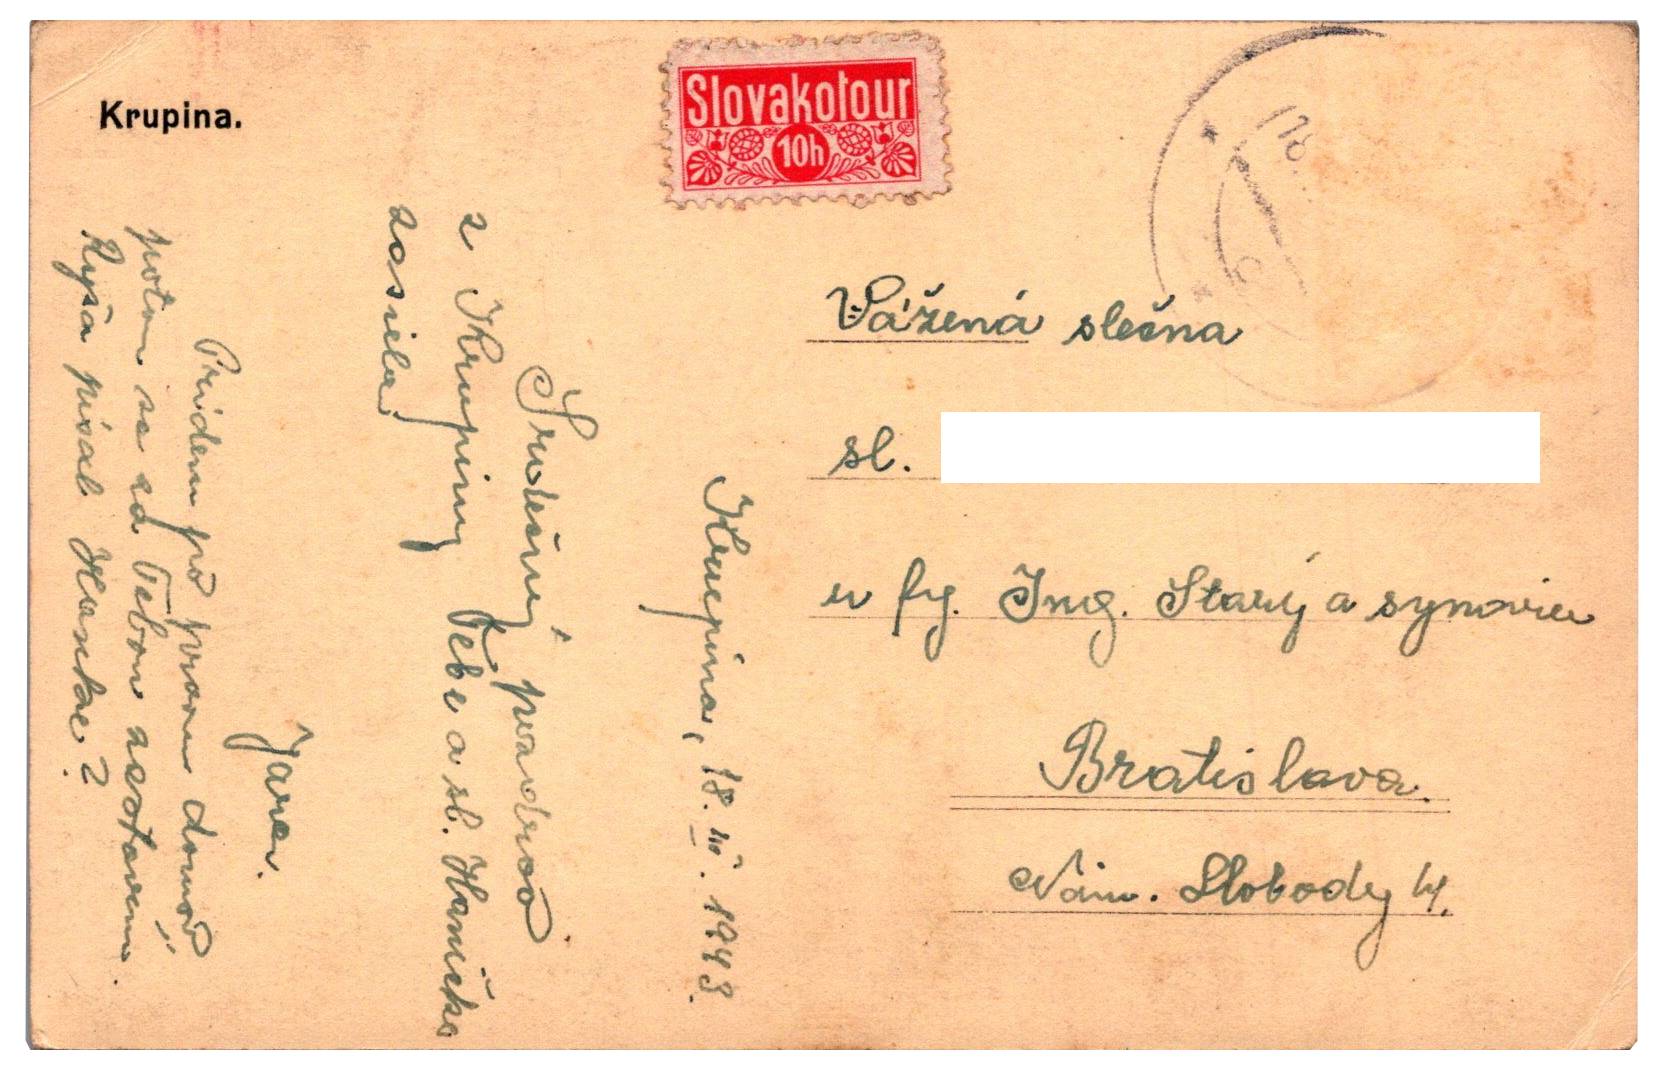 Krupina.
Slovakotour
10h
Krupina, 18. III. 1943.
Srdečný pozdrav
z Krupiny Tebe a sl. Haničke
zasiela
Jara.
Prídem po
potom sa za Tebou zastavím.
písal Hanke?
Vážená slečna
sl.
u fy. Ing. Starý a synovia
Bratislava.
Nám. Slobody 4.